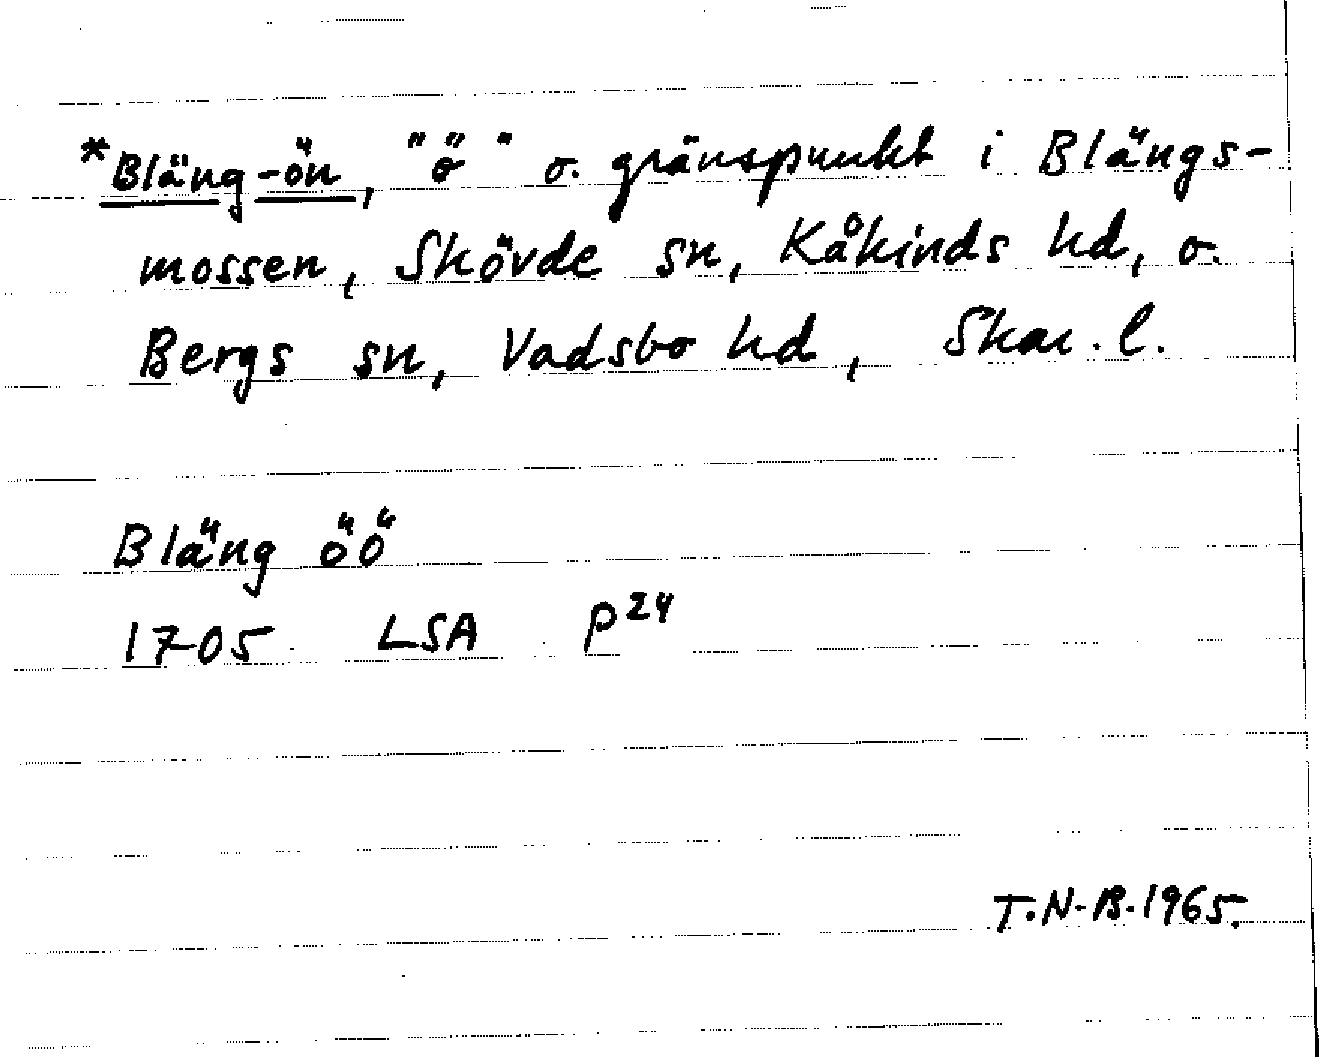 *Bläng-ön, "ö" o. gränspunkt i Blängs-
mossen, Skövde sn, Kåkinds hd, o.
Bergs sn, Vadsbo hd, Skar. l.
Bläng öö
1705 LSA P24
T.N-B. 1965.